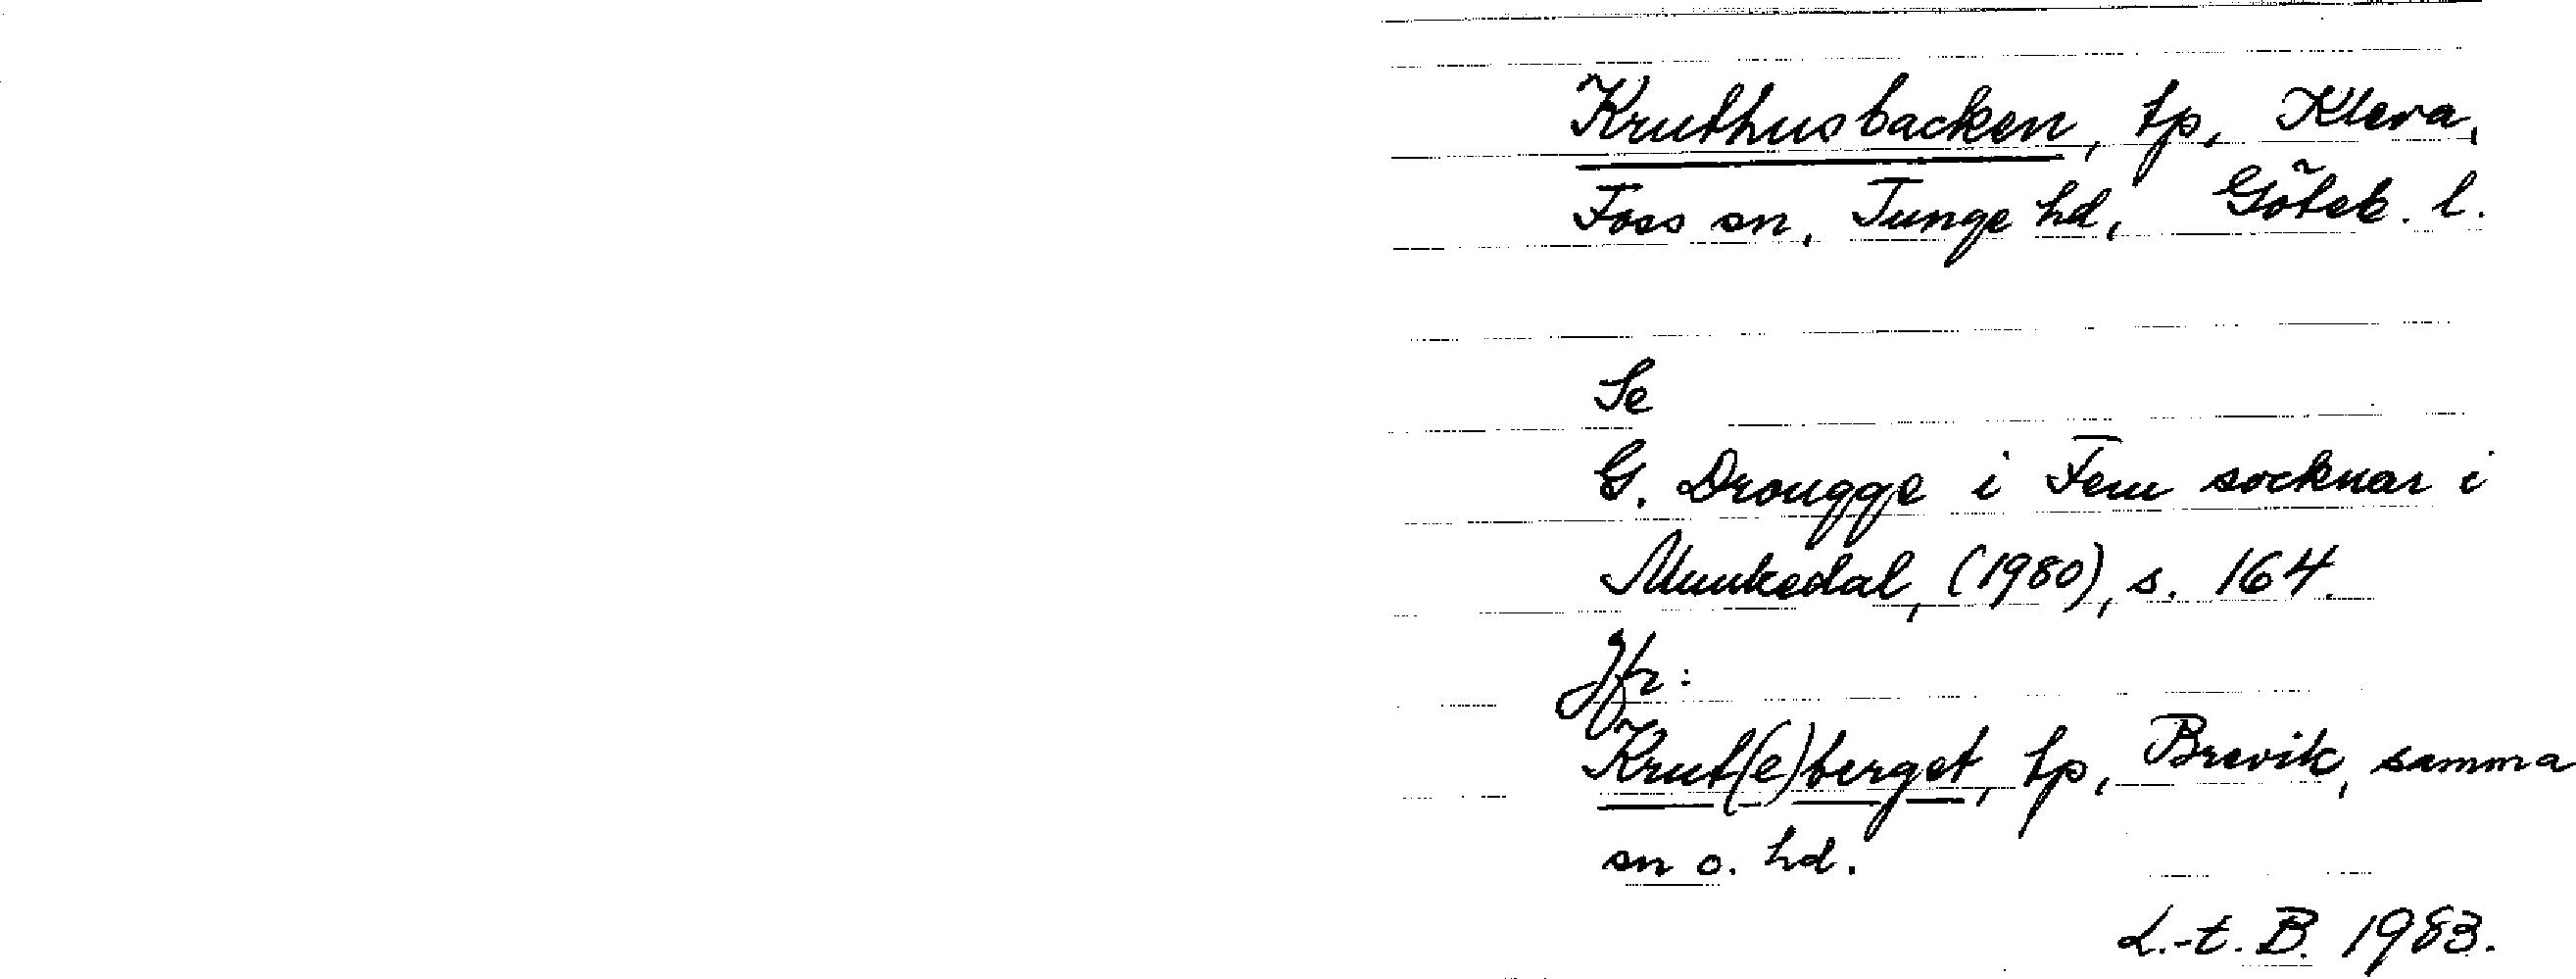 Kruthusbacken, tp, Kleva,
Foss sn, Tunge hd, Göteb. l.
Se
G. Drougge i Fem socknar i
Munkedal, (1980), s. 164.
Jfr:
Krut(e)berget, tp, Brevik, samma
sn o. hd.
L.-t. B. 1983.